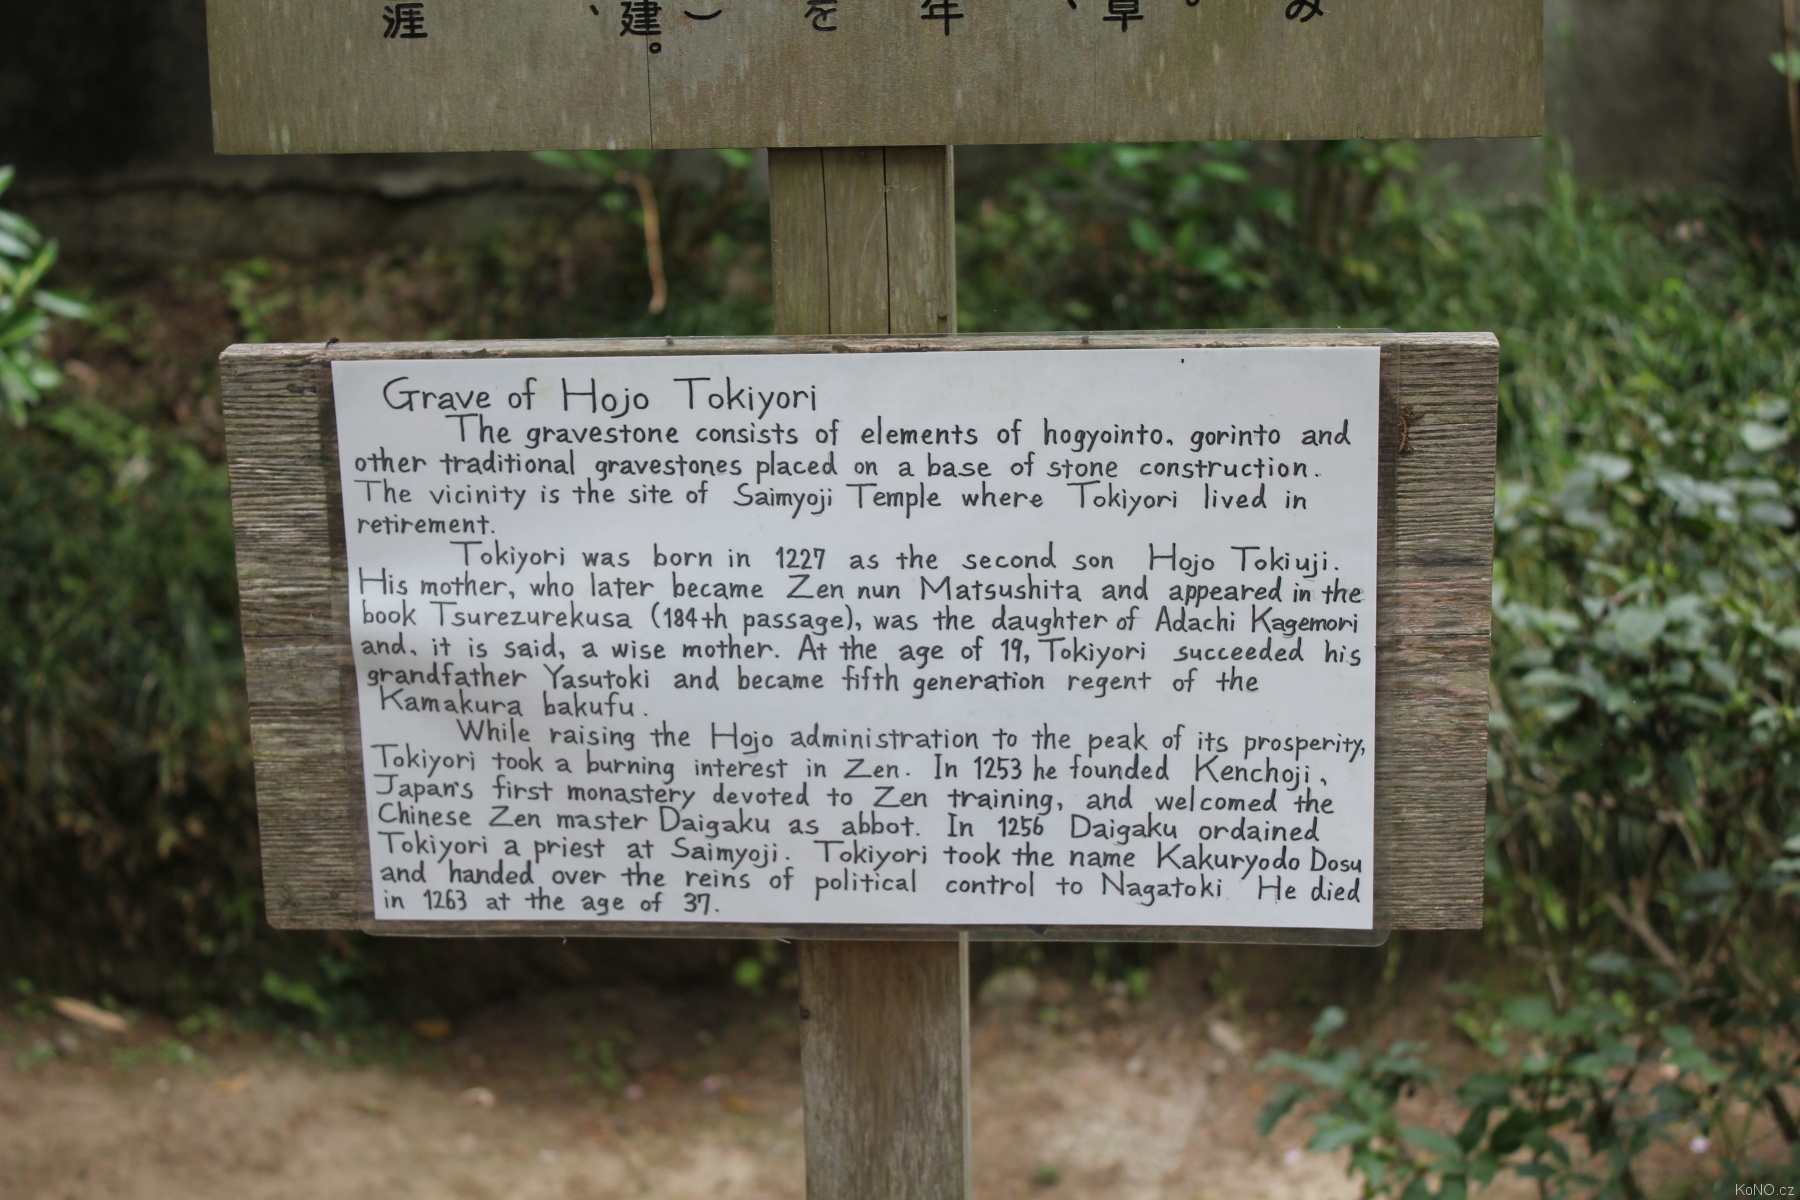 み
。
草
、
年
を
）
建。
、
涯
Grave of Hojo Tokiyori
The gravestone consists of elements of hogyointo, gorinto and
other traditional gravestones placed on a base of stone construction.
The vicinity is the site of Saimyoji Temple where Tokiyori lived in
retirement.
Tokiyori was born in 1227 as the second son Hojo Tokiuji.
His mother, who later became Zen nun Matsushita and appeared in the
book Tsurezurekusa (184th passage), was the daughter of Adachi Kagemori
and, it is said, a wise mother. At the age of 19, Tokiyori succeeded his
grandfather Yasutoki and became fifth generation regent of the
Kamakura bakufu.
While raising the Hojo administration to the peak of its prosperity,
Tokiyori took a burning interest in Zen. In 1253 he founded Kenchoji,
Japan's first monastery devoted to Zen training, and welcomed the
Chinese Zen master Daigaku as abbot. In 1256 Daigaku ordained
Tokiyori a priest at Saimyoji. Tokiyori took the name Kakuryodo Dosu
and handed over the reins of political control to Nagatoki. He died
in 1263 at the age of 37.
KoNO.cz